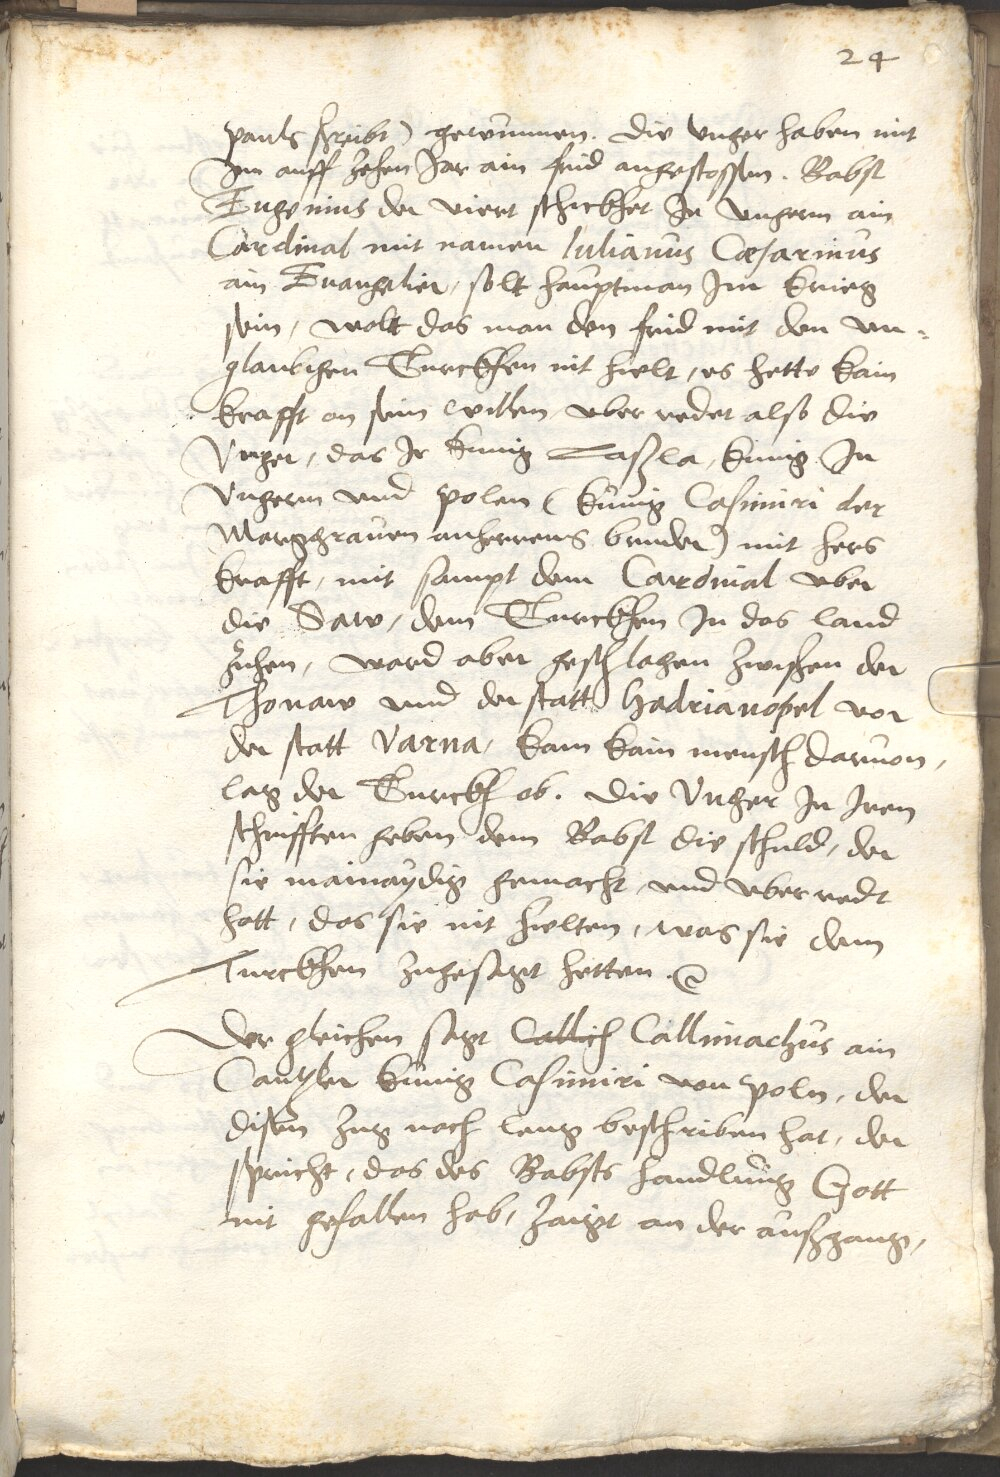 24
pauls schreibt) gewunnen. die vnger haben mit
Im auff zehen Jar ain frid angestossen. Babst
Eugenius der viert schickhet In vngerm ain
Cardinal mit namen Iulianus Cæsarinus
ain Euangelier, solt hauptman Im krieg
sein, wolt das man den frid mit den vn-
glaubigen Turckhen nit hielt, es hette kain
krafft on sein willen, vber redet also die
Vnger, das Ir kunig Laßla, kunig In
Vngerm vnd polen (kunig Casimiri der
Marggrauen anherrens bruder) mit hers
krafft, mit sampt dem Cardinal vber
die Saw, dem Turckhen In das land
zuhen, ward aber geschlagen zwischen der
Thonaw vnd der statt Hadrianopel vor
der statt Varna, kam kain mensch daruon,
lag der Turckh ob. die Vnger In Iren
schrifften geben dem Babst die schuld, der
sie mainaydig gemacht, vnd vber redt
hatt, das sie nit hielten, was sie dem
Turckhen zugesagt hetten.
Der gleichen sagt Callich Callimachus ain
Cantzler kunig Casimiri von poln, der
disen zug nach leng beschriben hat, der
spricht, das des Babsts handlung Gott
nit gefallen hab, zaigt an der außgang,